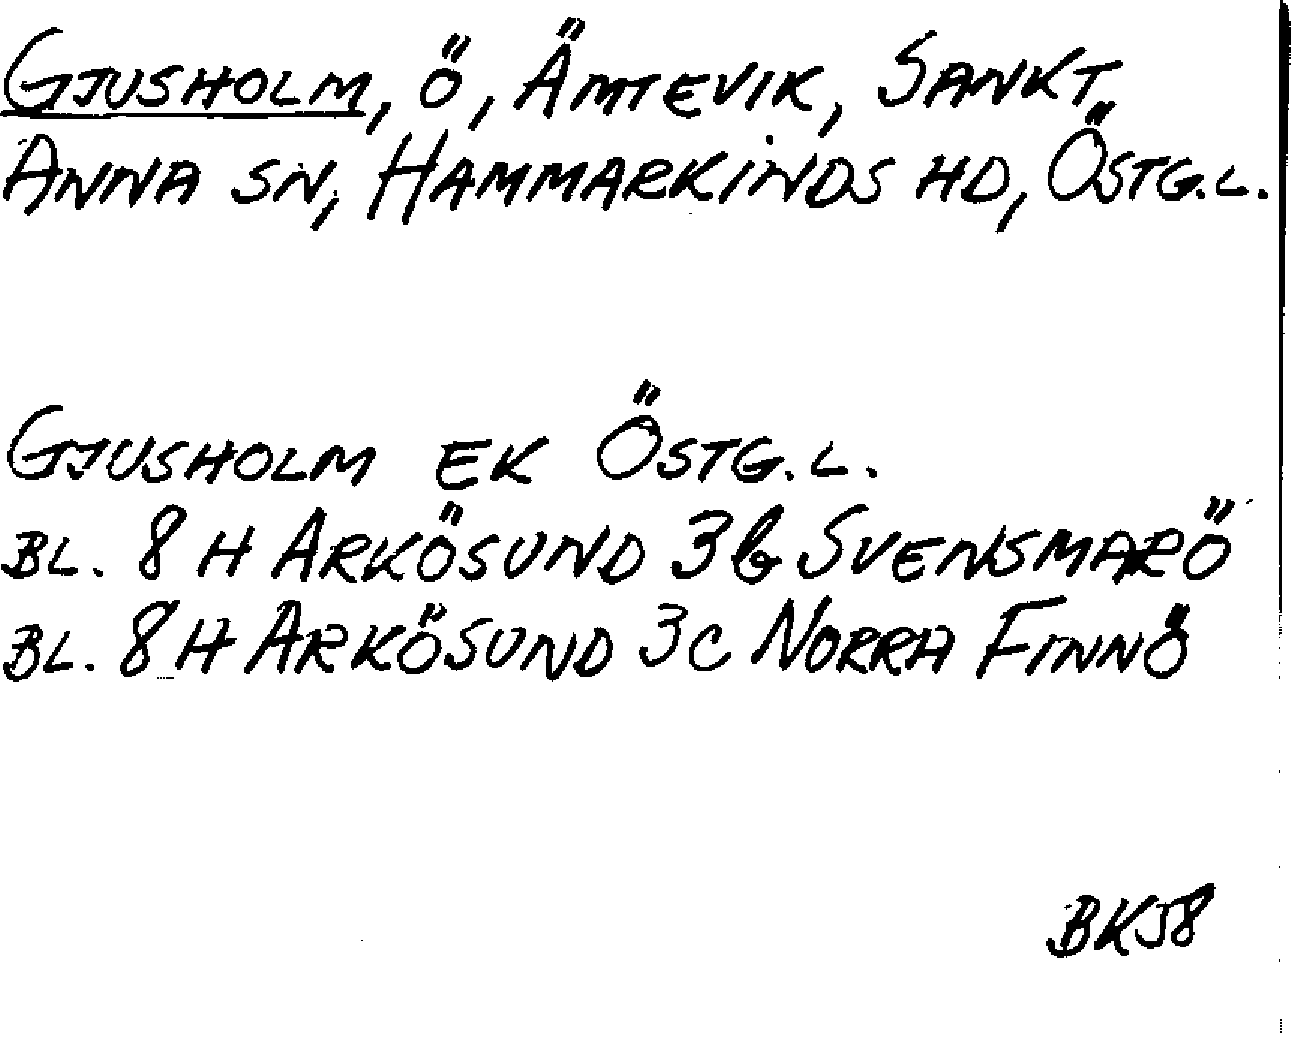 GJUSHOLM, Ö, ÄMTEVIK, SANKT
ANNA SN, HAMMARKINDS HD, ÖSTG.L.
GJUSHOLM EK ÖSTG.L.
BL. 8 H ARKÖSUND 3b SVENSMARÖ
BL. 8 H ARKÖSUND 3C NORRA FINNÖ
BKJ8